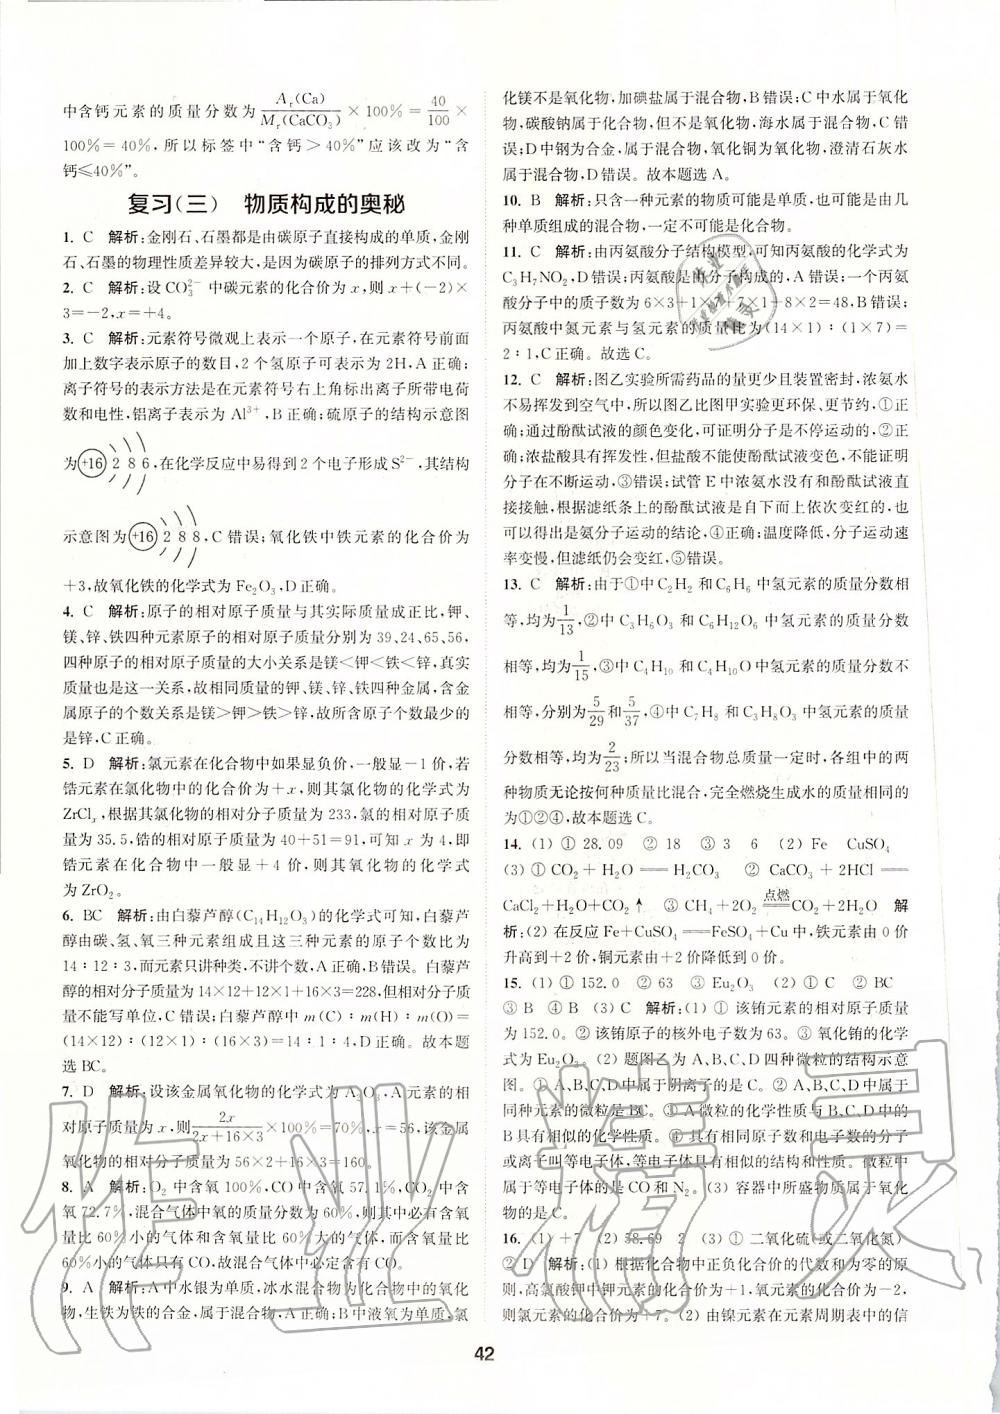 中含钙元素的质量分数为 Ar(Ca)/Mr(CaCO₃) ×100%=40/100×
100%=40%,所以标签中“含钙>40%”应该改为“含
钙≤40%”。
复习(三) 物质构成的奥秘
1. C 解析:金刚石、石墨都是由碳原子直接构成的单质,金刚
石、石墨的物理性质差异较大,是因为碳原子的排列方式不同。
2. C 解析:设CO₃²⁻中碳元素的化合价为x,则x+(-2)×
3=-2,x=+4。
3. C 解析:元素符号微观上表示一个原子,在元素符号前面
加上数字表示原子的数目,2个氢原子可表示为2H,A正确;
离子符号的表示方法是在元素符号右上角标出离子所带电荷
数和电性,铝离子表示为Al³⁺,B正确;硫原子的结构示意图
为(+16) 2 8 6,在化学反应中易得到2个电子形成S²⁻,其结构
示意图为(+16) 2 8 8,C错误;氧化铁中铁元素的化合价为
+3,故氧化铁的化学式为Fe₂O₃,D正确。
4. C 解析:原子的相对原子质量与其实际质量成正比,钾、
镁、锌、铁四种元素原子的相对原子质量分别为39、24、65、56,
四种原子的相对原子质量的大小关系是镁<钾<铁<锌,真实
质量也是这一关系,故相同质量的钾、镁、锌、铁四种金属,含金
属原子的个数关系是镁>钾>铁>锌,故所含原子个数最少的
是锌,C正确。
5. D 解析:氯元素在化合物中如果显负价,一般显-1价,若
锆元素在氯化物中的化合价为+x,则其氯化物的化学式为
ZrClₓ,根据其氯化物的相对分子质量为233,氯的相对原子质
量为35.5,锆的相对原子质量为40+51=91,可知x=4,即
锆元素在化合物中一般显+4价,则其氧化物的化学式
为ZrO₂。
6. BC 解析:由白藜芦醇(C₁₄H₁₂O₃)的化学式可知,白藜芦
醇由碳、氢、氧三种元素组成且这三种元素的原子个数比为
14:12:3,而元素只讲种类,不讲个数,A正确,B错误。白藜芦
醇的相对分子质量为14×12+12×1+16×3=228,但相对分子质
量不能写单位,C错误;白藜芦醇中m(C):m(H):m(O)=
(14×12):(12×1):(16×3)=14:1:4,D正确。故本题
选BC。
7. D 解析:设该金属氧化物的化学式为A₂O₃,A元素的相
对原子质量为x,则2x/(2x+16×3)×100%=70%,x=56,该金属
氧化物的相对分子质量为56×2+16×3=160。
8. A 解析:O₂中含氧100%,CO中含氧57.1%,CO₂中含氧
72.7%,混合气体中氧的质量分数为60%,则其中必有含氧
量比60%小的气体和含氧量比60%大的气体,而含氧量比
60%小的气体只有CO,故混合气体中必定含有CO。
9. A 解析:A中水银为单质,冰水混合物为化合物中的氧化
物,生铁为铁的合金,属于混合物,A正确;B中液氧为单质,氯
化镁不是氧化物,加碘盐属于混合物,B错误;C中水属于氧化
物,碳酸钠属于化合物,但不是氧化物,海水属于混合物,C错
误;D中钢为合金,属于混合物,氧化铜为氧化物,澄清石灰水
属于混合物,D错误。故本题选A。
10. B 解析:只含一种元素的物质可能是单质,也可能是由几
种单质组成的混合物,一定不可能是化合物。
11. C 解析:由丙氨酸分子结构模型,可知丙氨酸的化学式为
C₃H₇NO₂,D错误;丙氨酸是由分子构成的,A错误;一个丙氨
酸分子中的质子数为6×3+1×7+7×1+8×2=48,B错误;
丙氨酸中氮元素与氢元素的质量比为(14×1):(1×7)=
2:1,C正确。故选C。
12. C 解析:图乙实验所需药品的量更少且装置密封,浓氨水
不易挥发到空气中,所以图乙比图甲实验更环保、更节约,①正
确;通过酚酞试液的颜色变化,可证明分子是不停运动的,②正
确;浓盐酸具有挥发性,但盐酸不能使酚酞试液变色,不能证明
分子在不断运动,③错误;试管E中浓氨水没有和酚酞试液直
接接触,根据滤纸条上的酚酞试液是自下而上依次变红的,也
可以得出是氨分子运动的结论,④正确;温度降低,分子运动速
率变慢,但滤纸仍会变红,⑤错误。
13. C 解析:由于①中C₂H₂和C₆H₆中氢元素的质量分数相
等,均为1/13,②中C₃H₆O₃和C₆H₁₂O₆中氢元素的质量分数
相等,均为1/15,③中C₄H₁₀和C₄H₁₀O中氢元素的质量分数不
相等,分别为5/29和5/37,④中C₇H₈和C₃H₈O₃中氢元素的质量
分数相等,均为2/23;所以当混合物总质量一定时,各组中的两
种物质无论按何种质量比混合,完全燃烧生成水的质量相同的
为①②④,故本题选C。
14. (1) ① 28.09 ② 18 ③ 3 6 (2) Fe CuSO₄
(3) ① CO₂+H₂O══H₂CO₃ ② CaCO₃+2HCl══
CaCl₂+H₂O+CO₂↑ ③ CH₄+2O₂═点燃═CO₂+2H₂O 解
析:(2) 在反应Fe+CuSO₄══FeSO₄+Cu中,铁元素由0价
升高到+2价,铜元素由+2价降低到0价。
15. (1) ① 152.0 ② 63 ③ Eu₂O₃ (2) ① A ② BC
③ B ④ B (3) C 解析:(1) ① 该铕元素的相对原子质量
为152.0。② 该铕原子的核外电子数为63。③ 氧化铕的化学
式为Eu₂O₃。(2) 题图乙为A、B、C、D四种微粒的结构示意
图。① A、B、C、D中属于阴离子的是A。② A、B、C、D中属于
同种元素的微粒是B、C。③ A微粒的化学性质与B、C、D中的
B具有相似的化学性质。④ 具有相同原子数和电子数的分子
或离子叫等电子体,等电子体具有相似的结构和性质。微粒中
属于等电子体的是CO和N₂。(3) 容器中所盛物质属于氧化
物的是C。
16. (1) +7 (2) 58.69 2 (3) ① 二氧化硫(或二氧化氮)
② D 解析:(1) 根据化合物中正负化合价的代数和为零的原
则,高氯酸钾中钾元素的化合价为+1,氧元素的化合价为-2,
则氯元素的化合价为+7。(2) 由镍元素在元素周期表中的信
42
作业精灵